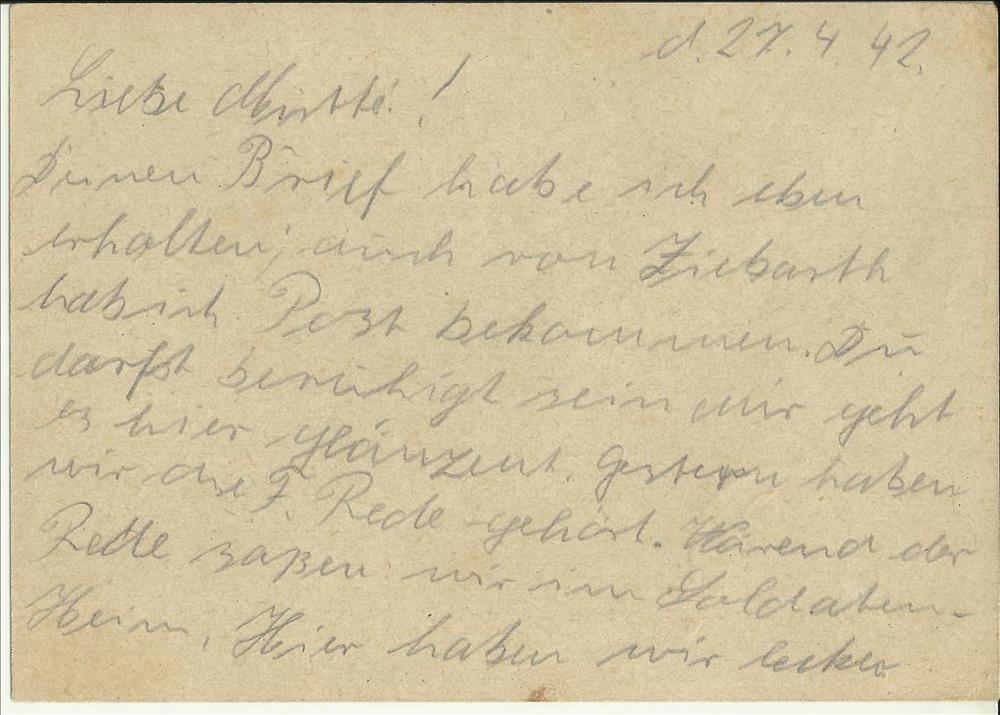 d. 27. 4. 42.
Liebe Mutti!
Deinen Brief habe ich eben
erhalten, auch von Ziebarth
hab ich Post bekommen. Du
darfst beruhigt sein mir geht
es hier glänzent. Gestern haben
wir die F. Rede gehört. Wärend der
Rette saßen wir im Soldaten-
Heim. Hier haben wir lecker